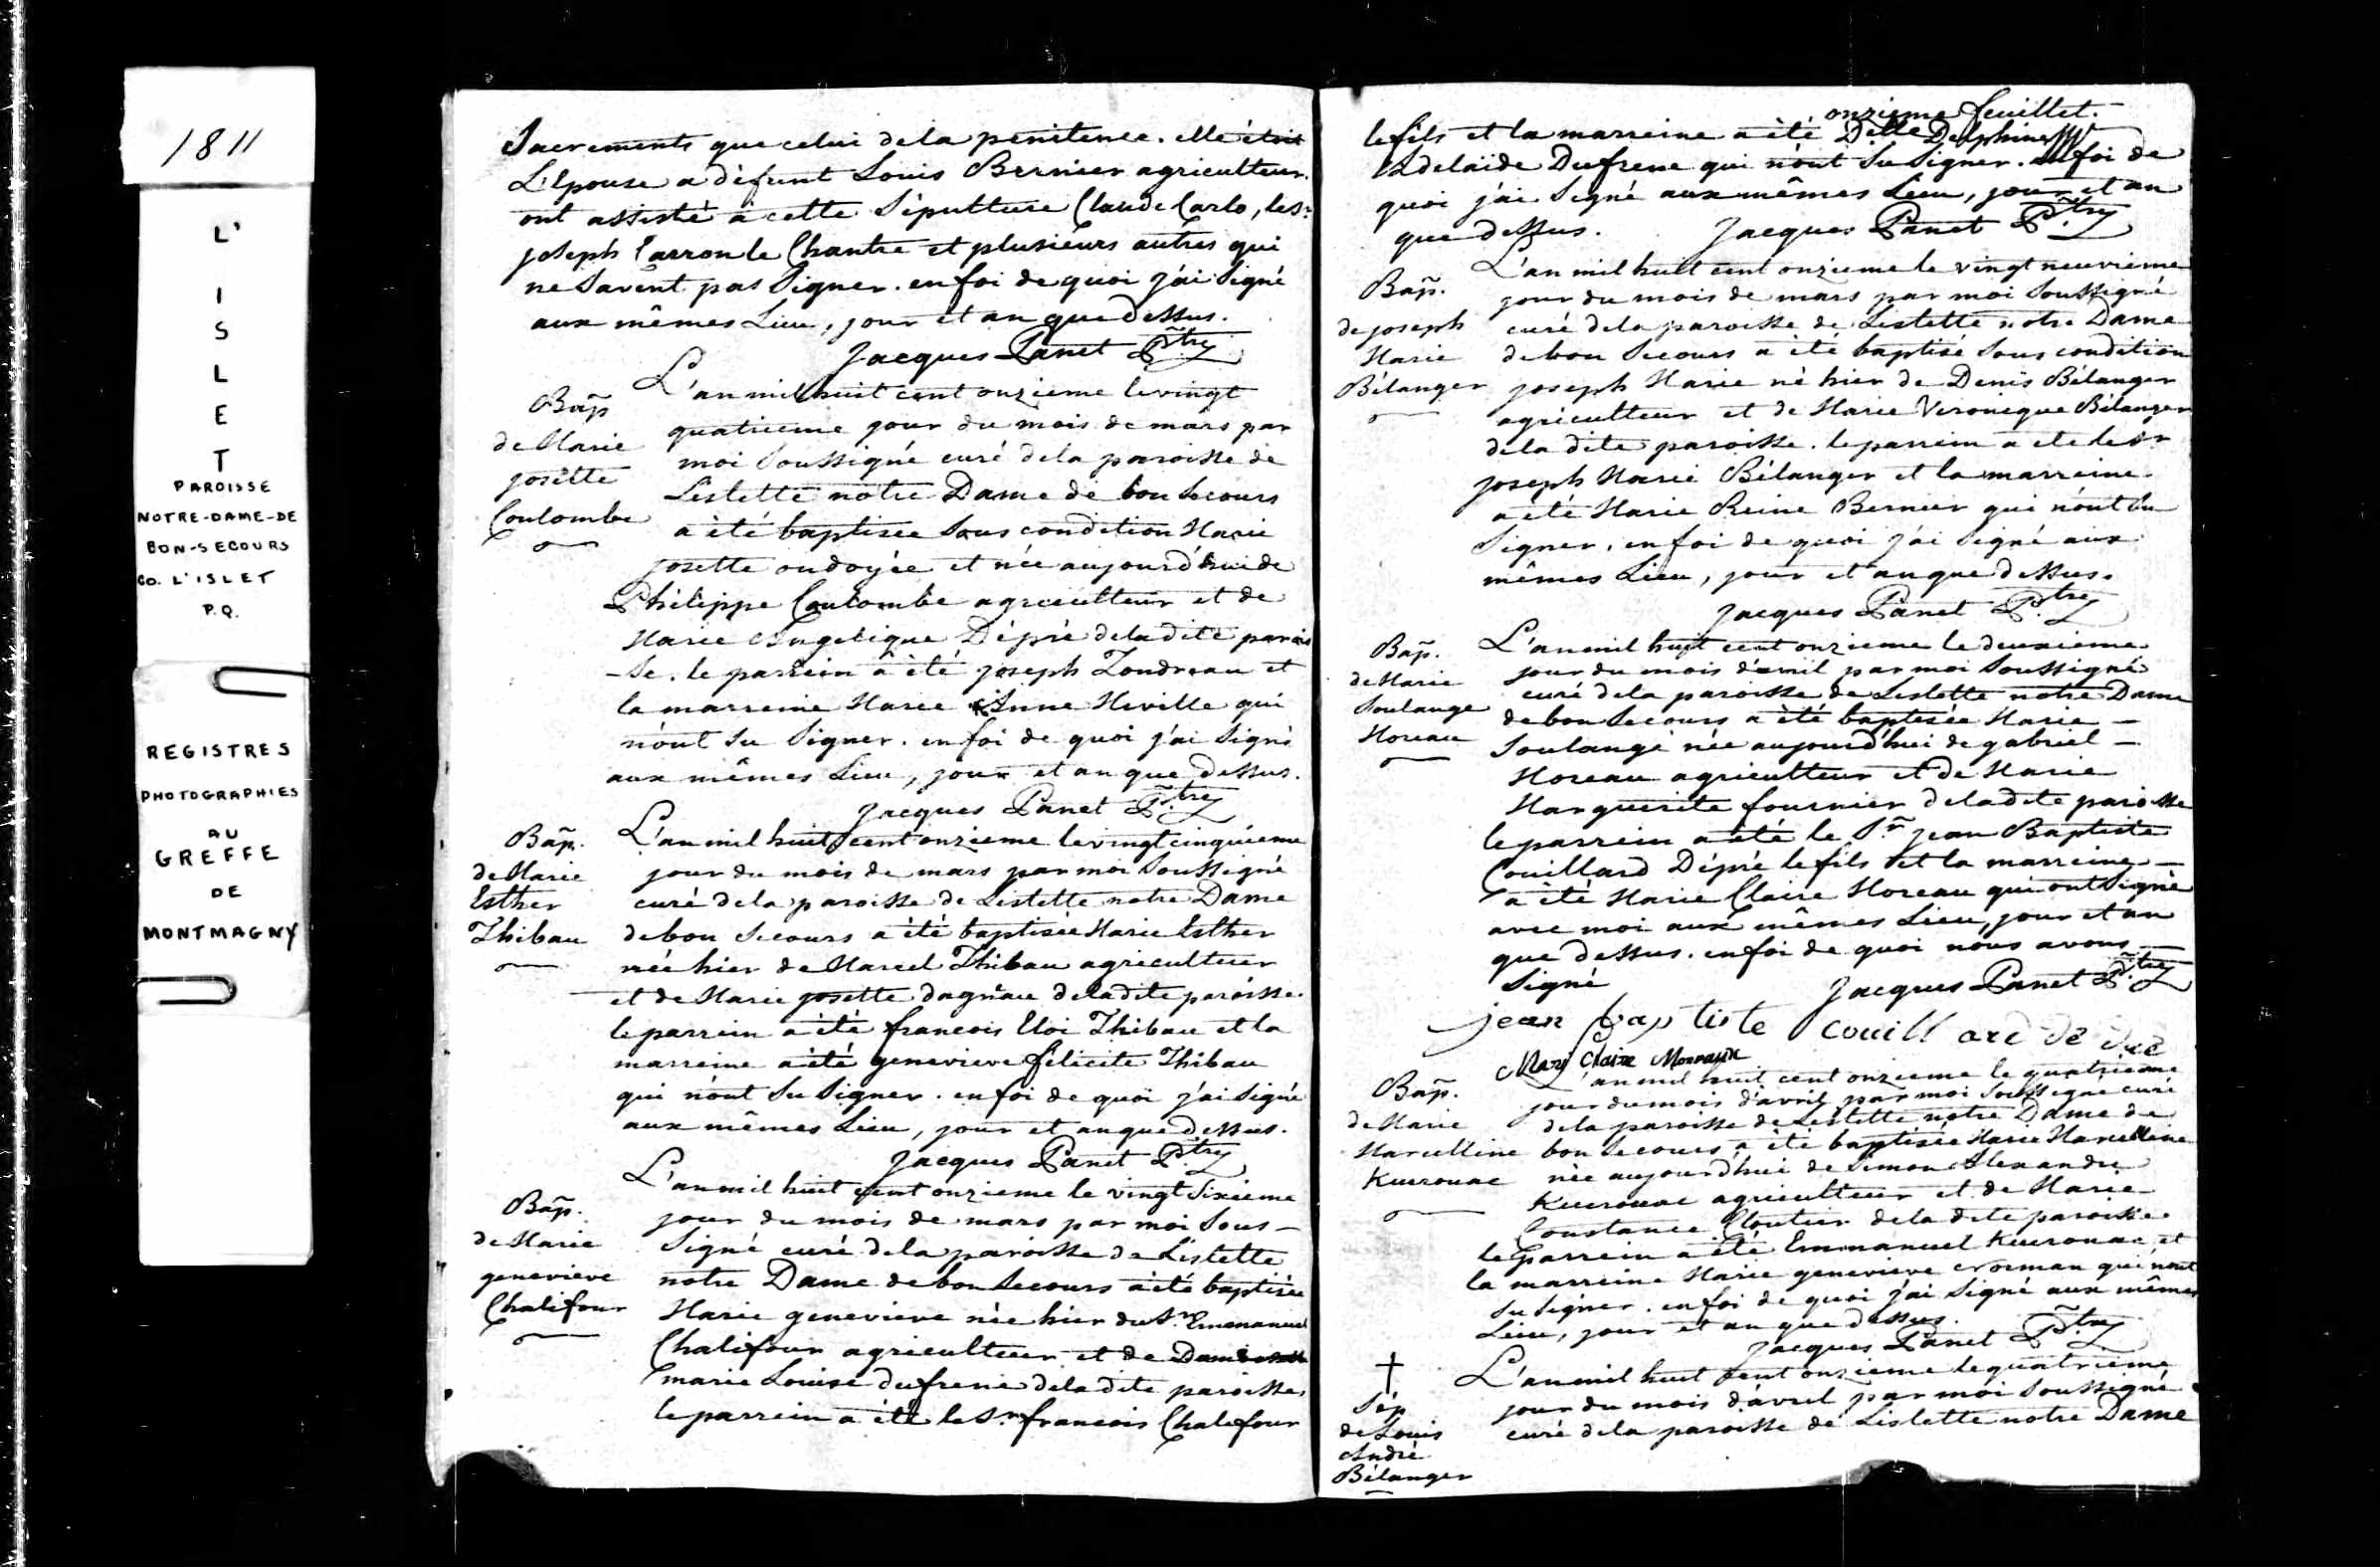 1811
L'
I
S
L
E
T
PAROISSE
NOTRE-DAME-DE
BON-SECOURS
CO. L'ISLET
P.Q.
REGISTRES
PHOTOGRAPHIES
AU
GREFFE
DE
MONTMAGNY
Sacrements que celui de la penitence. elle étoit
L'Epouse a défunt Louis Bernier agriculteur.
ont assisté à cette Sépulture Claude Carlo, le Sr
joseph Carron le Chantre et plusieurs autres qui
ne Savent pas Signer. en foi de quoi j'ai Signé
aux mêmes Lieu, jour et an que dessus.
Jacques Panet Ptre
Bap̃
de Marie
josette
Coulombe
L'an mil huit cent onzieme le vingt
quatrieme jour du mois de mars par
moi Soussigné curé de la paroisse de
Lislette notre Dame de bon Secours
a été baptisée Sous condition Marie
josette ondoyée et née aujourd'hui de
Philippe Coulombe agriculteur et de
Marie Angelique Dépré de la dite parois
-se. le parrein a été joseph Tondreau et
la marreine Marie Anne Miville qui
n'ont Su Signer. en foi de quoi j'ai Signé
aux mêmes Lieu, jour et an que dessus.
Jacques Panet Ptre
Bap̃.
de Marie
Esther
Thibau
L'an mil huit cent onzieme le vingt cinquieme
jour du mois de mars par moi Soussigné
curé de la paroisse de Lislette notre Dame
de bon Secours a été baptisée Marie Esther
née hier de Marcel Thibau agriculteur
et de Marie josette dagnau de la dite paroisse.
le parrein a été francois Eloi Thibau et la
marreine a été genevieve félicité Thibau
qui n'ont Su Signer. en foi de quoi j'ai Signé
aux mêmes Lieu, jour et an que dessus.
Jacques Panet Ptre
Bap̃.
de Marie
genevieve
Chalifour
L'an mil huit cent onzieme le vingt Sixieme
jour du mois de mars par moi Sous-
Signé curé de la paroisse de Lislette
notre Dame de bon Secours a été baptisée
Marie genevieve née hier du Sr Emmanuel
Chalifour agriculteur et de Dame
marie Louise dufrene de la dite paroisse,
le parrein a été le Sr francois Chalifour
onzieme feuillet.
le fils et la marreine a été Delle Delphine
Adelaide Dufrene qui n'ont Su Signer. en foi de
quoi j'ai Signé aux mêmes Lieu, jour et an
que dessus. Jacques Panet Ptre
Bap̃.
de joseph
Marie
Bélanger
L'an mil huit cent onzieme le vingt neuvieme
jour du mois de mars par moi Soussigné
curé de la paroisse de Lislette notre Dame
de bon Secours a été baptisé Sous condition
joseph Marie né hier de Denis Bélanger
agriculteur et de Marie Veronique Bélanger
de la dite paroisse. le parrein a été le Sr
joseph Marie Bélanger et la marreine
a été Marie Reine Bernier qui n'ont Su
Signer. en foi de quoi j'ai Signé aux
mêmes Lieu, jour et an que dessus.
Jacques Panet Ptre
Bap̃.
de Marie
Soulange
Moreau
L'an mil huit cent onzieme le deuxieme
jour du mois d'avril par moi Soussigné
curé de la paroisse de Lislette notre Dame
de bon Secours a été baptisée Marie -
Soulange née aujourd'hui de gabriel -
Moreau agriculteur et de Marie
Marguerite fournier de la dite paroisse
le parrein a été le Sr jean Baptiste
Couillard Dépré le fils et la marreine -
a été Marie Claire Moreau qui ont Signé
avec moi aux mêmes Lieu, jour et an
que dessus. en foi de quoi nous avons -
Signé Jacques Panet Ptre
jean baptiste couillard
Mary Claire
Bap̃.
de Marie
Marcelline
Kuerouac
L'an mil huit cent onzieme le quatrieme
jour du mois d'avril par moi Soussigné curé
de la paroisse de Lislette notre Dame de
bon Secours a été baptisée Marie Marcelline
née aujourd'hui de Simon Alexandre
Kuerouac agriculteur et de Marie
Constance Cloutier de la dite paroisse.
le parrein a été Emmanuel Kuerouac et
la marreine Marie genevieve crosman qui n'ont
Su Signer. en foi de quoi j'ai Signé aux mêmes
Lieu, jour et an que dessus.
Jacques Panet Ptre
Sép
de Louis
André
Bélanger
L'an mil huit cent onzieme le quatrieme
jour du mois d'avril par moi Soussigné
curé de la paroisse de Lislette notre Dame